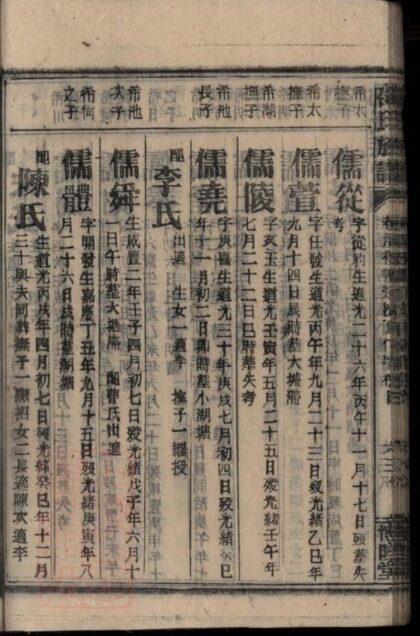 希太
撫子
儒從
字從豹生道光二十六年丙午十一月十七日歿葬失
考
希太
撫子
儒萱
字任發生道光丙午年九月二十三日歿光緒乙巳年
九月十四日辰時葬大塘灣
希湖
撫子
儒陵
字亥玉生道光壬寅年五月二十五日歿光緒壬午年
七月二十二日巳時葬失考
希池
長子
儒堯
字庚喜生道光三十年庚戌七月初四日歿光緒癸巳
年十一月初二日時葬小湖塘
配
李氏
出適 生女一適李 撫子一繼授
希池
次子
儒舜
生咸豐二年壬子四月初七日歿光緒戊子年六月十
一日午時葬大塘灣 配曹氏出適
希尚
之子
儒體
字開發生嘉慶丁丑年九月十五日歿光緒庚寅年八
月二十六日戌時葬湖塘
配
陳氏
生道光丙戌年四月初七日歿光緒癸巳年十二月
三十與夫同葬撫子一儒招女二長適陳次適李
氏族譜